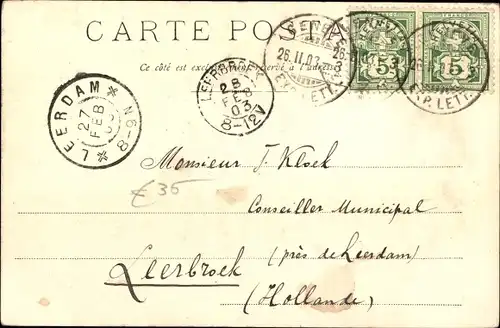 CARTE POSTA
Ce côté est exclusivement réservé à l'adresse
GENÈVE
26.II.03
EXP. LETT.
5
5
EXP. LETT.
LEERBROEK
28
FEB
03
8-12V
LEERDAM
27
FEB
03
8-9N
Monsieur J. Kloek
€35
Conseiller Municipal
Leerbroek (près de Leerdam)
(Hollande)